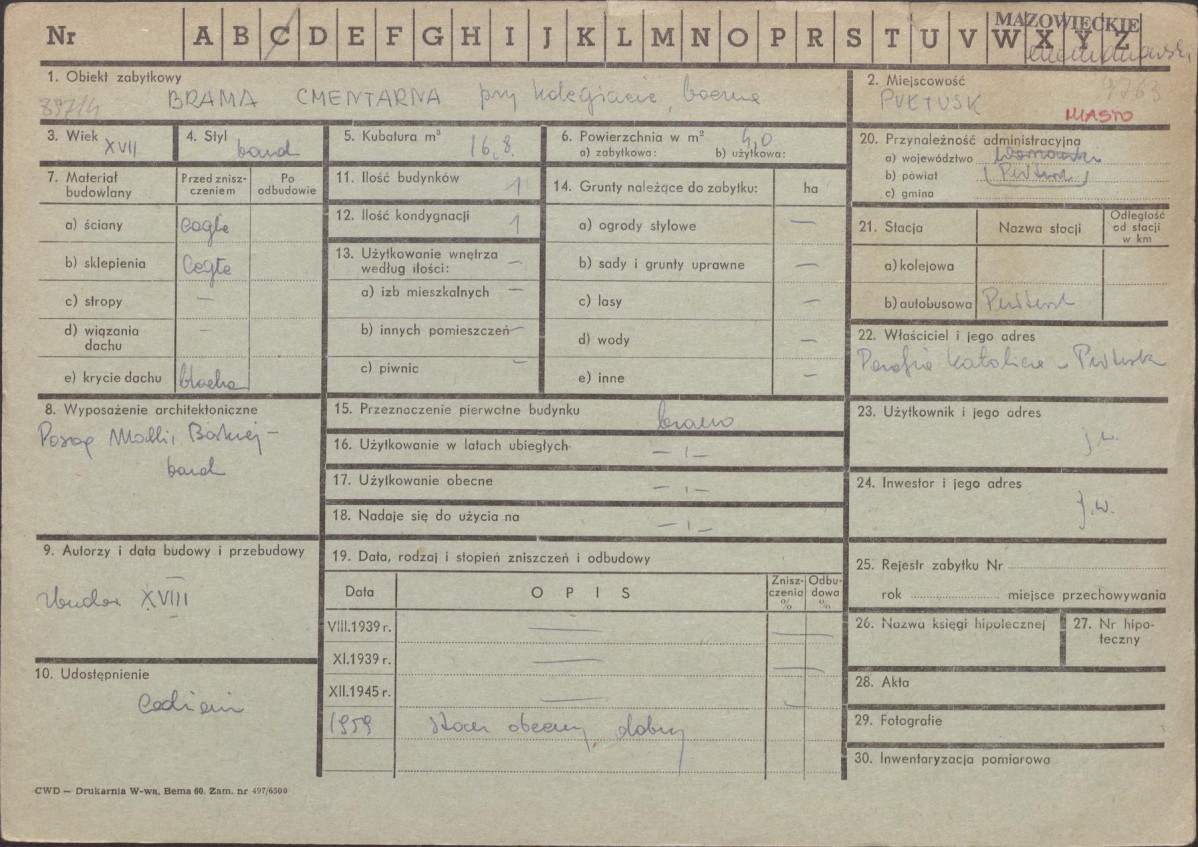 Nr A B C D E F G H I J K L M N O P R S T U V W X Y Z
MAZOWIECKIE
1. Obiekt zabytkowy
897/4 BRAMA CMENTARNA przy kolegiacie, boczna
2. Miejscowość
PUŁTUSK
MIASTO
3. Wiek XVII
4. Styl barok
5. Kubatura m³ 16,8
6. Powierzchnia w m²
a) zabytkowa: b) użytkowa:
20. Przynależność administracyjna
a) województwo Warszawskie
b) powiat (Pułtusk)
c) gmina
7. Materiał budowlany
Przed znisz-
czeniem
Po
odbudowie
a) ściany Cegła
b) sklepienia Cegła
c) stropy —
d) wiązania
dachu —
e) krycie dachu blacha
11. Ilość budynków 1
12. Ilość kondygnacji 1
13. Użytkowanie wnętrza
według ilości: —
a) izb mieszkalnych —
b) innych pomieszczeń —
c) piwnic —
14. Grunty należące do zabytku: ha
a) ogrody stylowe —
b) sady i grunty uprawne —
c) lasy —
d) wody —
e) inne —
21. Stacja
Nazwa stacji
Odległość
od stacji
w km
a) kolejowa
b) autobusowa Pułtusk
22. Właściciel i jego adres
Parafia Katolicka - Pułtusk
8. Wyposażenie architektoniczne
Posąg Matki Boskiej -
barok
15. Przeznaczenie pierwotne budynku brama
16. Użytkowanie w latach ubiegłych — ı —
17. Użytkowanie obecne — ı —
18. Nadaje się do użycia na — ı —
23. Użytkownik i jego adres
j.w.
24. Inwestor i jego adres
j.w.
9. Autorzy i data budowy i przebudowy
XVIII
19. Data, rodzaj i stopień zniszczeń i odbudowy
Data
O P I S
Znisz-
czenia
%
Odbu-
dowa
%
VIII.1939 r. —
XI.1939 r. —
XII.1945 r. —
1959 stan obecny dobry
25. Rejestr zabytku Nr
rok miejsce przechowywania
26. Nazwa księgi hipotecznej
27. Nr hipo-
teczny
28. Akta
29. Fotografie
30. Inwentaryzacja pomiarowa
10. Udostępnienie
CWD — Drukarnia W-wa, Bema 60. Zam. nr 497/6500